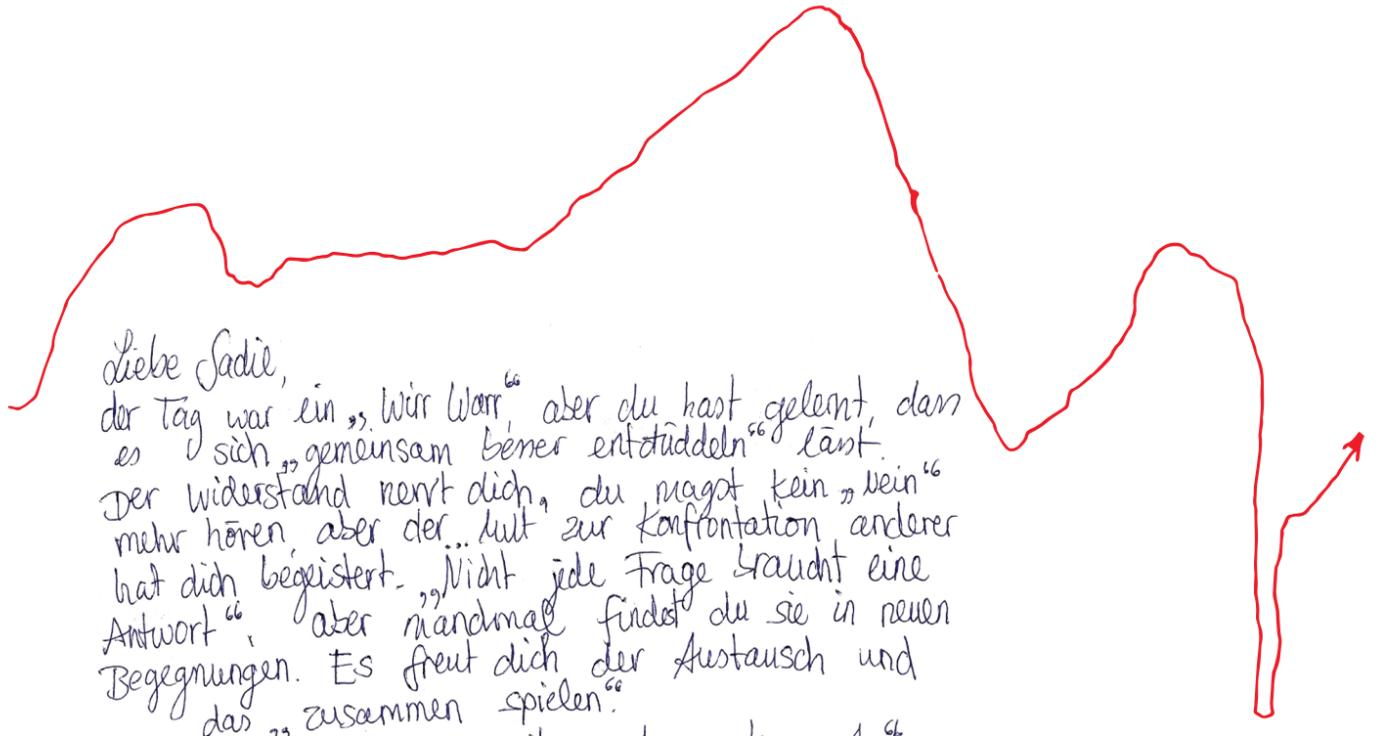 Liebe Sadie,
der Tag war ein „Wirr Warr“, aber du hast gelernt, dass
es sich „gemeinsam besser enttüddeln“ lässt.
Der Widerstand nervt dich, du magst kein „Nein“
mehr hören, aber der Mut zur Konfrontation anderer
hat dich begeistert. „Nicht jede Frage braucht eine
Antwort“, aber manchmal findest du sie in neuen
Begegnungen. Es freut dich der Austausch und
das „zusammen spielen“.